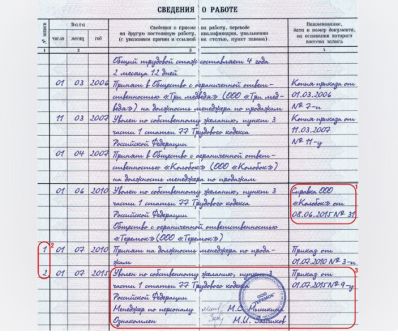 СВЕДЕНИЯ О РАБОТЕ
№ записи
Дата
число
месяц
год
Сведения о приеме на работу, переводе
на другую постоянную работу, квалификации, увольнении
(с указанием причин и ссылкой на статью, пункт закона)
Наименование,
дата и номер документа,
на основании которого
внесена запись
1
2
3
4
Общий трудовой стаж составляет 4 года
2 месяца 12 дней
01 03 2006 Принят в Общество с ограниченной ответст- Копия приказа от
венностью «Три медведя» (ООО «Три мед- 01.03.2006
ведя») на должность менеджера по продажам № 2-п
11 03 2007 Уволен по собственному желанию, пункт 3 Копия приказа от
части 1 статьи 77 Трудового кодекса 11.03.2007
Российской Федерации № 11-у
01 04 2007 Принят в Общество с ограниченной ответст-
венностью «Колобок» (ООО «Колобок»)
на должность менеджера по продажам
01 06 2010 Уволен по собственному желанию, пункт 3 Справка ООО
части 1 статьи 77 Трудового кодекса «Колобок» от
Российской Федерации 08.06.2015 № 31
Общество с ограниченной ответственностью
«Теремок» (ООО «Теремок»)
1 01 07 2010 Принят на должность менеджера по прода- Приказ от
жам 01.07.2010 № 3-п
2 01 07 2015 Уволен по собственному желанию, пункт 3 Приказ от
части 1 статьи 77 Трудового кодекса 01.07.2015 № 9-у
Российской Федерации
Менеджер по персоналу М.С. Мышкина
Ознакомлен М.И.
1
2
3